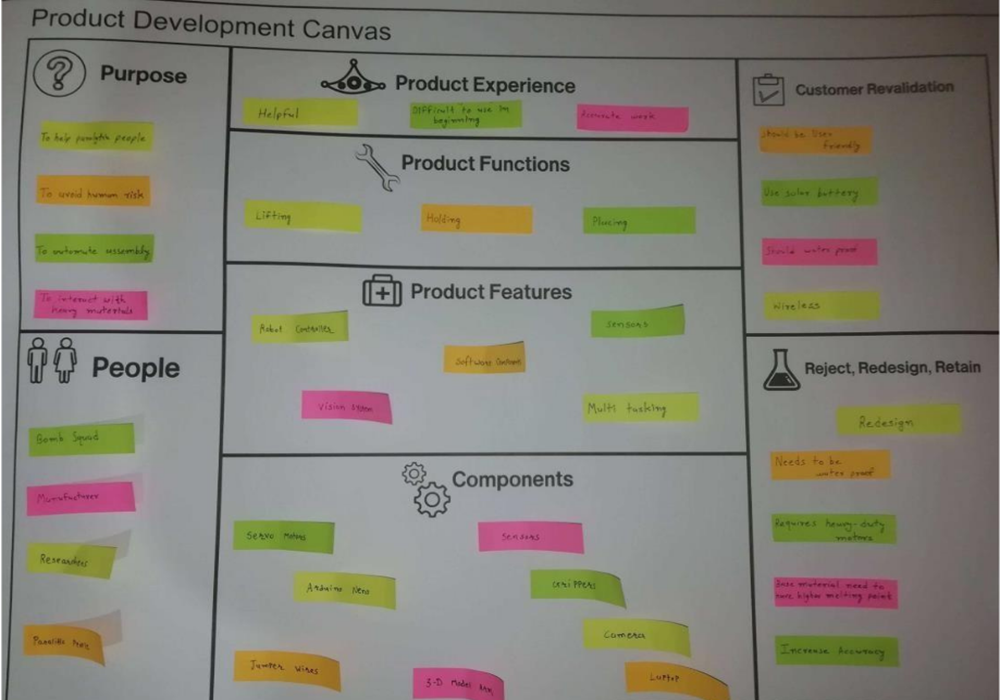 Product Development Canvas
Purpose
To help people
To avoid human risk
To automate assembly
To interact with
heavy materials
People
Bomb Squad
Manufacturer
Researchers
Product Experience
Helpful
Difficult to use in
beginning
work
Product Functions
Lifting
Holding
Placing
Product Features
Robot Controller
Sensors
Software
Vision System
Multi tasking
Components
Servo Motors
Sensors
Arduino
Grippers
Camera
Jumper Wires
3-D Model
Laptop
Customer Revalidation
Should be User
Friendly
Use solar battery
Should water proof
Wireless
Reject, Redesign, Retain
Redesign
Needs to be
water proof
Requires heavy-duty
motors
Base material need to
have higher melting point
Increase Accuracy